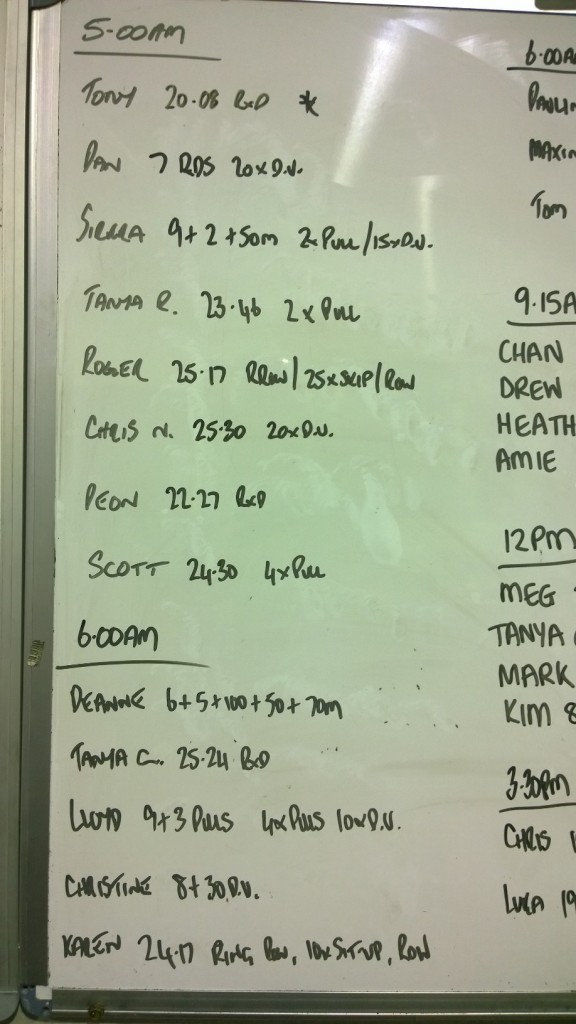 5-00AM
TONY 20-08 RxD *
DAN 7 RDS 20xD.U.
9+2+50m 2xPull/15xD.U.
TANYA R. 23-46 2xPull
ROGER 25-17 RRow/25xSKIP/Row
CHRIS N. 25-30 20xD.U.
DEON 22-27 RxD
SCOTT 24-30 4xPull
6-00AM
DEANNE 6+5+100+50+70m
TANYA C.. 25-24 RxD
LLOYD 9+3 Pulls 4xPulls 10xD.U.
CHRISTINE 8+30D.U.
KAREN 24-17 RING Row, 10xSIT-UP, ROW
6-00A
PAULIN
MAXIN
Tom
9.15A
CHAN
DREW
HEATH
AMIE
12PM
MEG
TANYA
MARK
KIM 8
3-30PM
CHRIS 1
LUCA 19